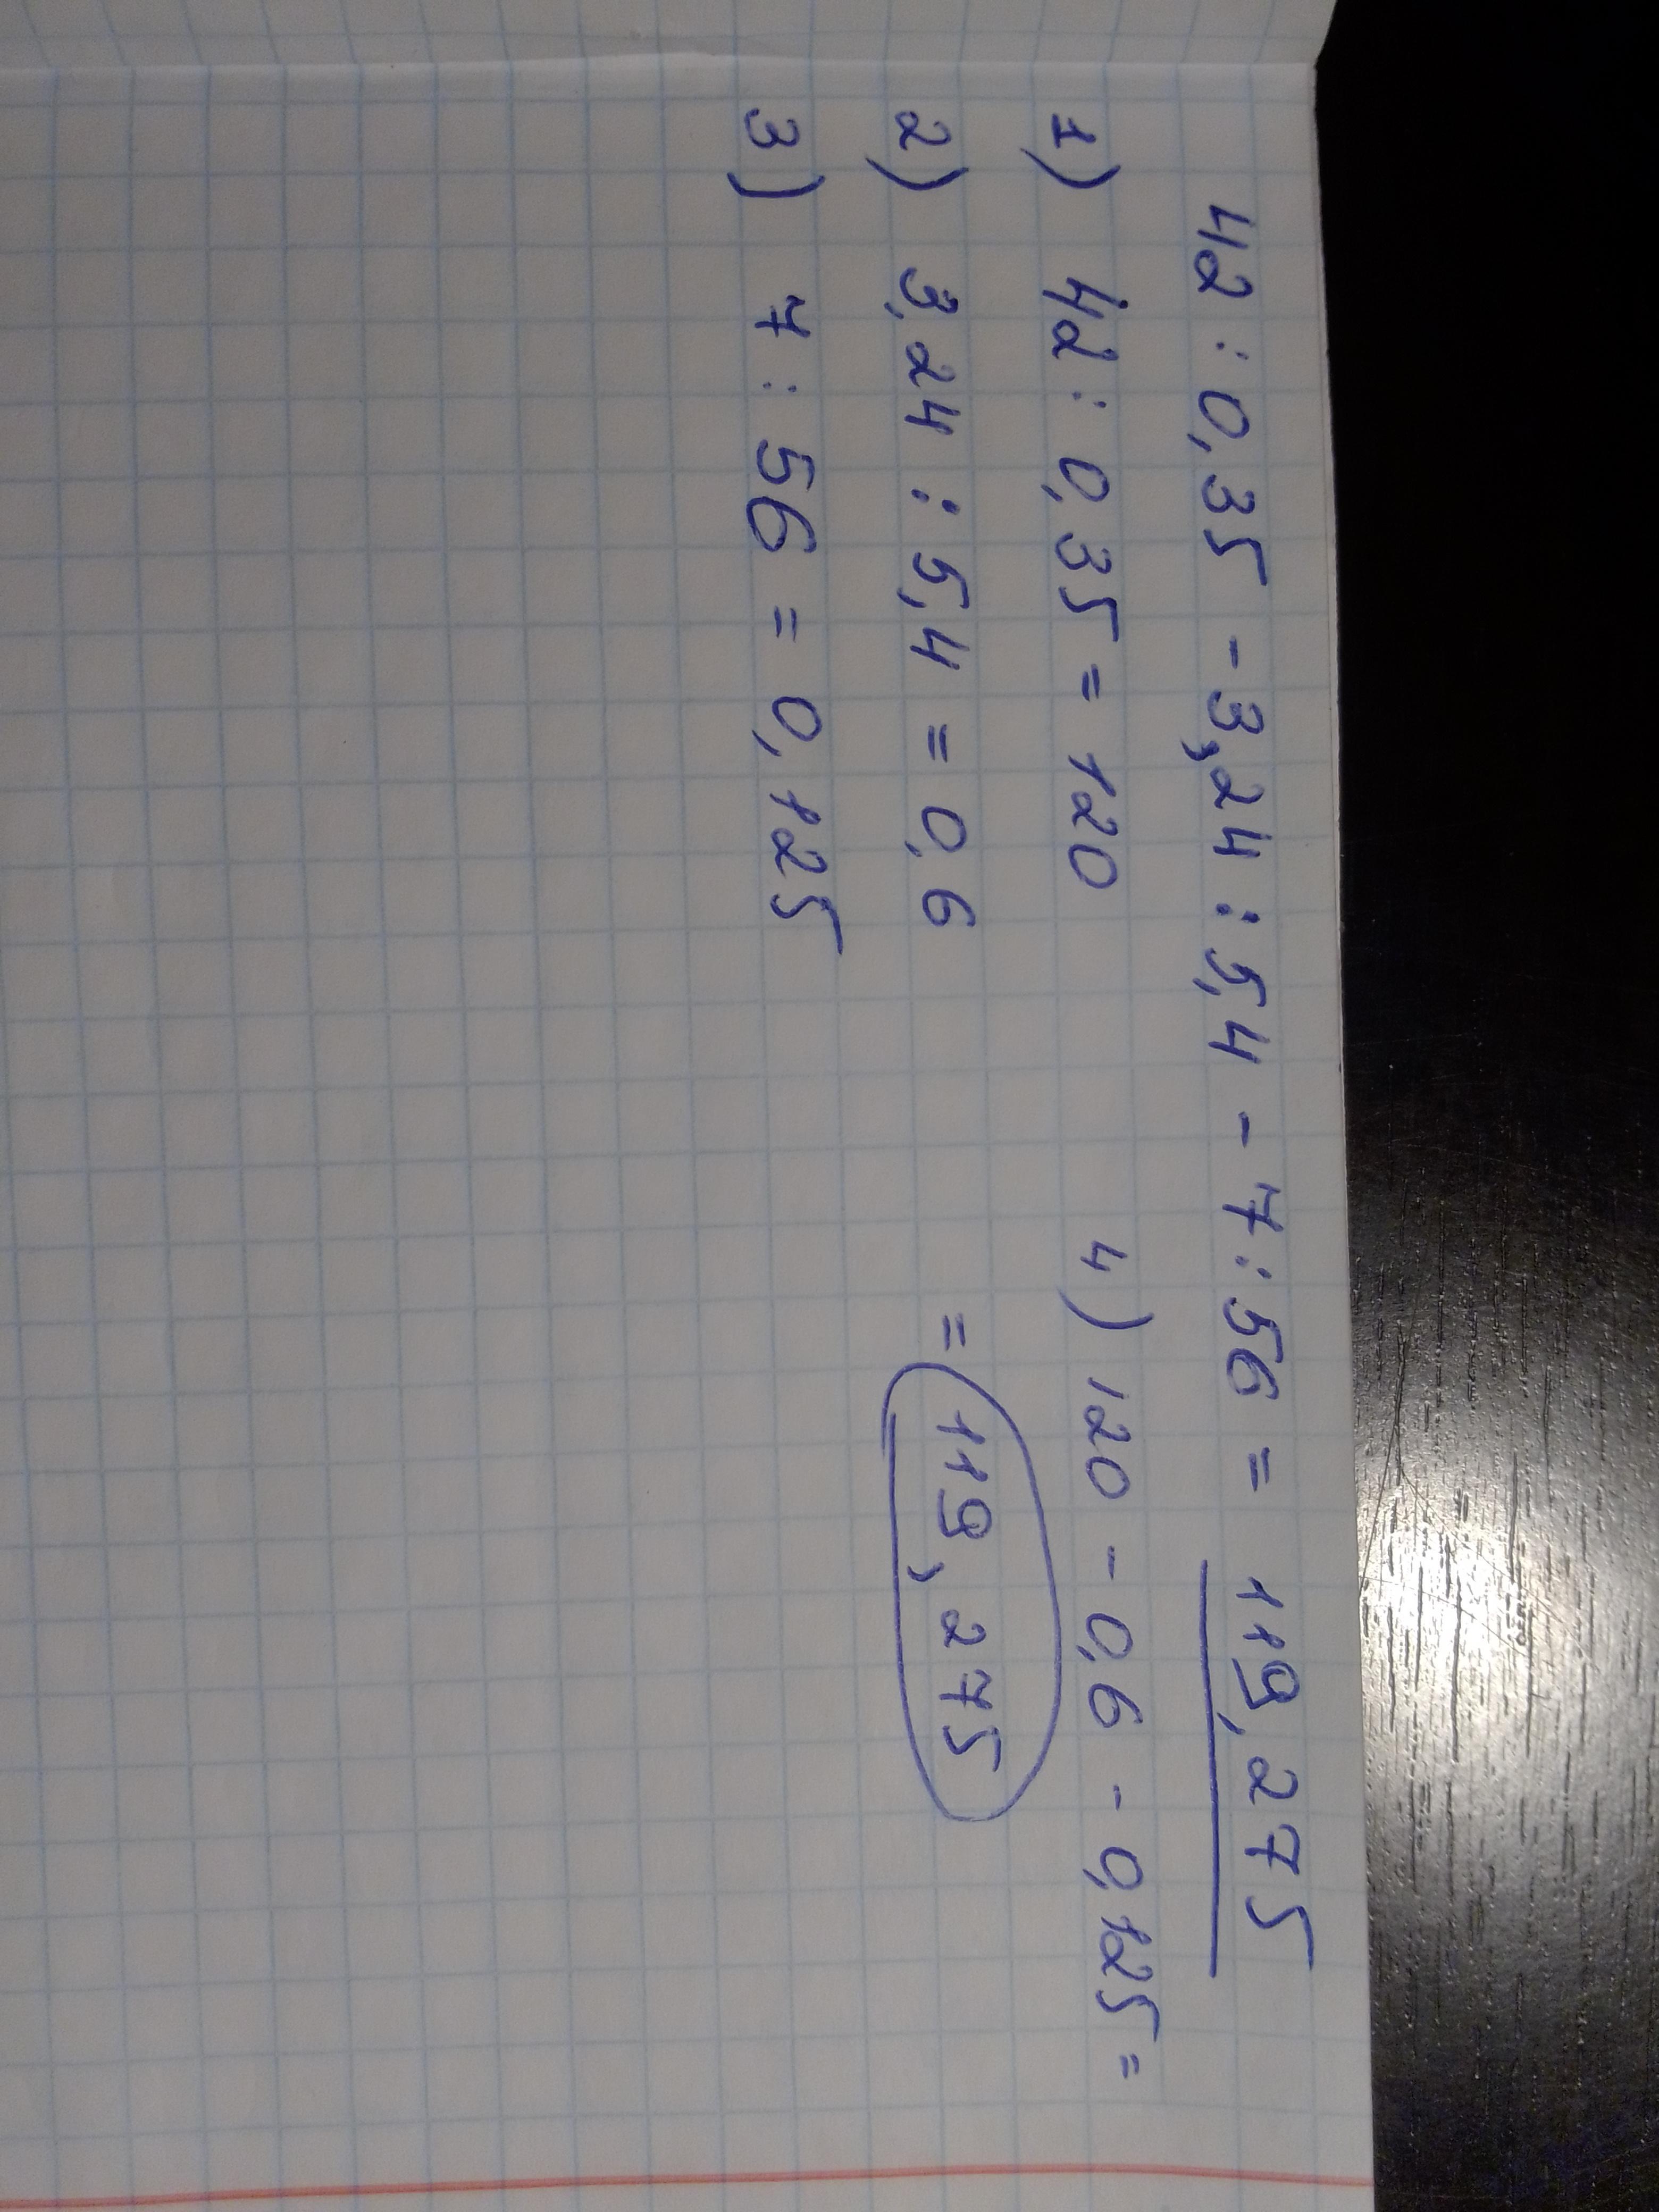 42 : 0,35 - 3,24 : 5,4 - 7 : 56 = 119,275
1) 42 : 0,35 = 120
2) 3,24 : 5,4 = 0,6
3) 7 : 56 = 0,125
4) 120 - 0,6 - 0,125 =
= 119,275